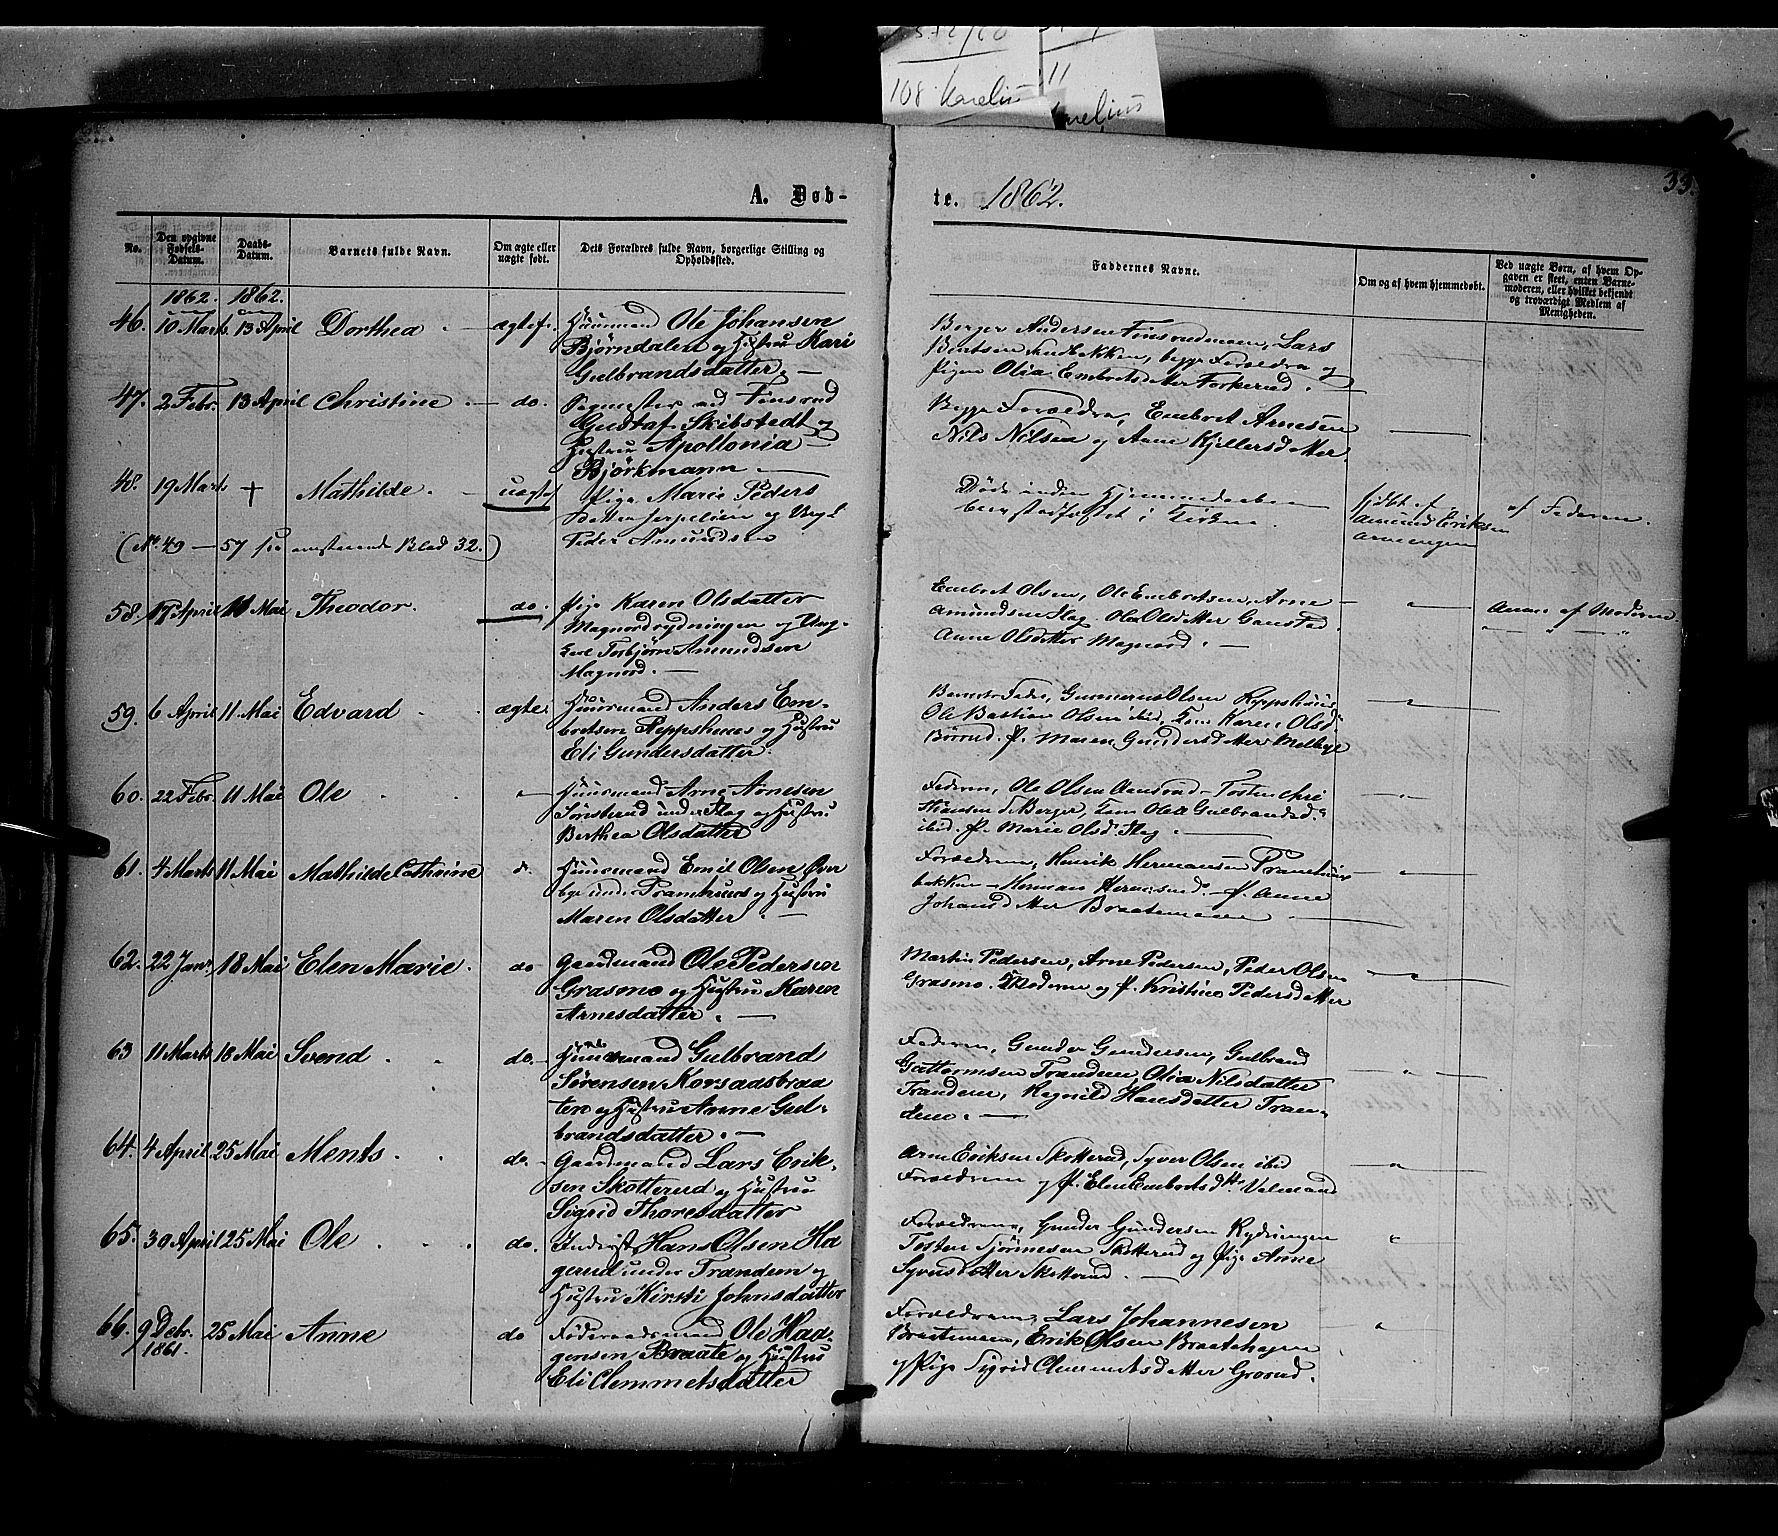 108 Karelius
11
A. Døb-
te. 1862.
33.
No.
Den opgivne Fødsels-Datum.
Daabs-Datum.
Barnets fulde Navn.
Om ægte eller uægte født.
Dets Forældres fulde Navn, borgerlige Stilling og Opholdssted.
Faddernes Navne.
Om og af hvem hjemmedøbt.
Ved uægte Børn, af hvem Op-
gaven er skeet, enten Barne-
moderen, eller hvilket bekjendt
og troværdigt Medlem af
Menigheden.
1862. 1862.
46. 10 Marts 13 April Dorthea - ægtef. Huusmand Ole Johansen
Bjørndalen og Hustru Kari
Gulbrandsdatter. -
Berger Andersen Finsrudmoen, Lars
Bentsen, begge Forældre og
Pigen Olia Embretsdatter Torkerud.
47. 2 Febr. 13 April Christine - do. Segmester ved Finsrud
Gustaf Skibstedt og
Hustru Apollonia
Björkmann -
Begge Forældre, Embret Arnesen
Nils Nilsen og Anne Kjellersdatter
48. 19 Marts + Mathilde. - uægte Pige Marie Peders
datter og Ungk.
Peder Amundsen
Døde inden Hjemmedaaben
blev stadfæstet i Kirken.
hjdbt af
Amund Eriksen
af Faderen.
(No. 49 - 57 see omstaaende Blad 32.)
58. 17 April 11 Mai Theodor. do. Pige Karen Olsdatter
Magnordrydningen og Ung-
karl Torbjørn Amundsen
Magnord. -
Embret Olsen, Ole Embretsen, Arne
Amundsen Hag, Olea Olsdatter Gaustad
Anne Olsdatter Magnord. -
Anm. af Moderen
59. 6 April 11 Mai Edvard ægte Huusmand Anders Em-
bretsen Reppshuus og Hustru
Eli Gundersdatter.
Barnets Fader, Gunnerus Olsen Reppshuus
Ole Bastian Olsen ibid, Kone Karen Olsd.
Børrud. P. Maren Gundersdatter Melbye
60. 22 Febr. 11 Mai Ole " Huusmand Arne Arnesen
Sønsterud under Hag og Hustru
Berthea Olsdatter
Faderen, Ole Olsen Aamrud, Tosten Chri
stiansen Berger, Kone Olea Gulbrandsd.
ibid. P. Marie Olsd. Hag. -
61. 4 Marts 11 Mai Mathilde Cathrine d. Huusmand Emil Olsen Over
bye under Tramhuus og Hustru
Maren Olsdatter. -
Forældrene, Henrik Hermansen Tramhuus
bekken - Herman Hermansen P. Anne
Johansdatter Braatemoen -
62. 22 Janr. 18 Mai Elen Marie. do Gaardmand Ole Pedersen
Grasmo og Hustru Karen
Arnesdatter. -
Martin Pedersen, Arne Pedersen, Peder Olsen
Grasmo. Moderen og P. Kristine Pedersdatter
63 11 Marts 18 Mai Svend. do. Huusmand Gulbrand
Sørensen Korsadsbraa
ten og Hustru Anne Gul-
brandsdatter. -
Faderen, Gunder Gundersen, Gulbrand
Guttormsen Trandem, Olia Nilsdatter
Trandem, Ragnild Hansdatter Tran-
dem. -
64. 4 April 25 Mai Ments. do. Gaardmand Lars Erik-
sen Skotterud og Hustru
Sigrid Thoresdatter
Arne Eriksen Skotterud, Syver Olsen ibid
Forældrene og P. Elen Embretsdtr Valmand
65. 30 April 25 Mai Ole do. Inderst Hans Olsen Ha
gerud under Trandem og
Hustru Kirsti Johnsdatter
Forældrene, Gunder Gundersen Rydningen
Tosten Skotterud og Pige Anne
Syversdatter Skotterud. -
66. 9 Debr. 1861. 25 Mai Anne do Føderaadsmand Ole Haa-
gensen Braate og Hustru
Eli Clemmetsdatter
Forældrene, Lars Johannesen
Braatemoen, Erik Olsen Braatehagen
og Pige Sigrid Clemmetsdatter Grorud.